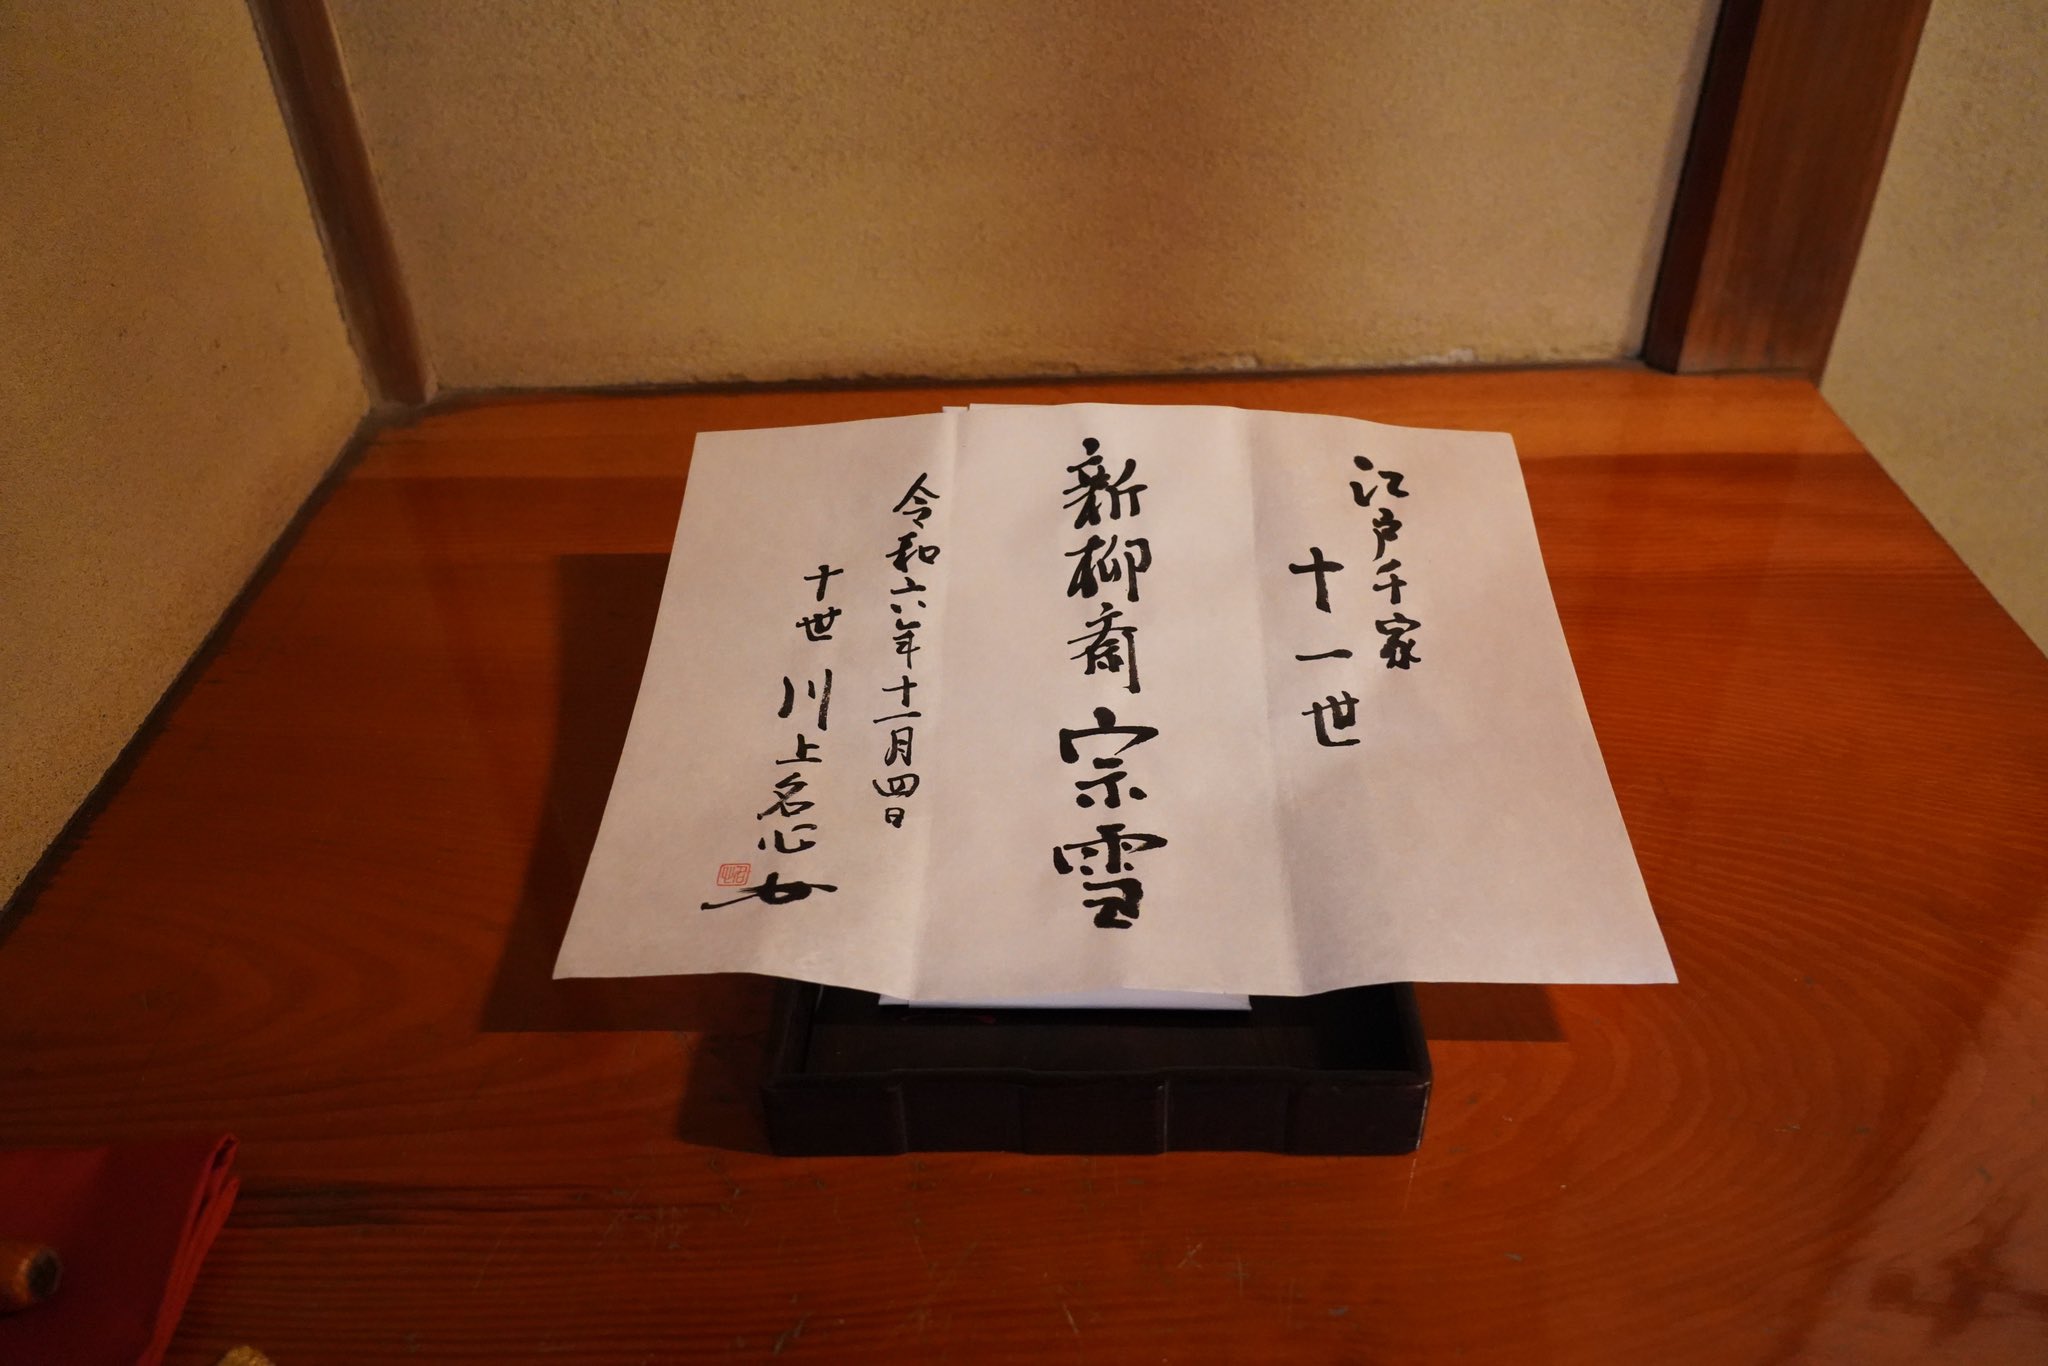 江戸千家
十一世
新柳斎宗雪
令和六年十一月四日
十世 川上名心